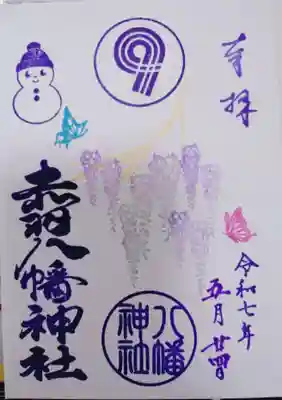 奉拝
令和七年
五月廿四日
赤羽八幡神社
八幡
神社